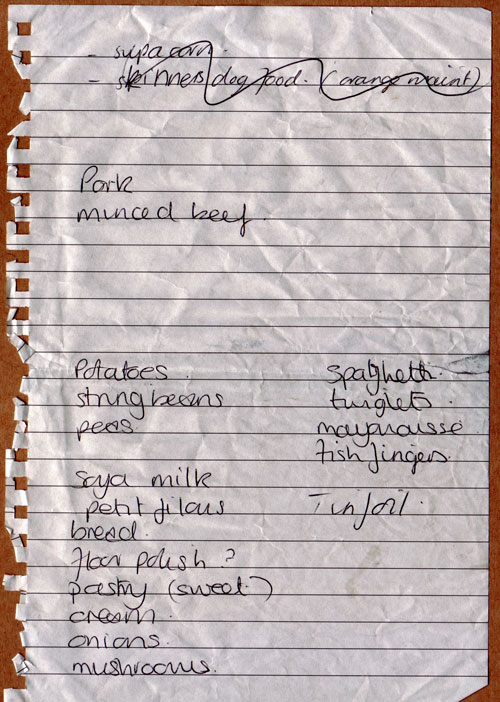 - supa corn.
- skinners dog food. (orange maint)
Pork
minced beef.
Potatoes.
string beans
peas
spaghetti.
turglets.
mayonausse
fish fingers.
soya milk
petit filous
Tin foil.
bread.
floor polish ?
pastry (sweet.)
cream.
onions.
mushrooms.